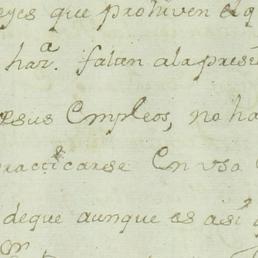 eyes que prohiven el q
harᵃ. falten ala prese
esus Empleos, no ha
practicarse En uso
deque aunque es asi q